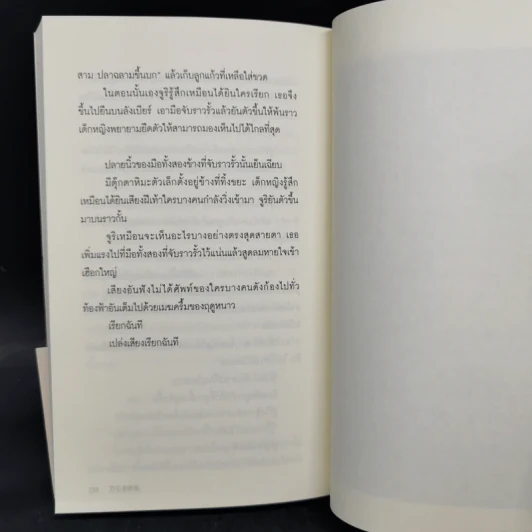 สาม ปลาฉลามขึ้นบก" แล้วเก็บลูกแก้วที่เหลือใส่ขวด
ในตอนนั้นเองจูริรู้สึกเหมือนได้ยินใครเรียก เธอจึง
ขึ้นไปยืนบนลังเบียร์ เอามือจับราวรั้วแล้วยันตัวขึ้นให้พ้นราว
เด็กหญิงพยายามยืดตัวให้สามารถมองเห็นไปได้ไกลที่สุด
ปลายนิ้วของมือทั้งสองข้างที่จับราวรั้วนั้นเย็นเฉียบ
มีตุ๊กตาหิมะตัวเล็กตั้งอยู่ข้างที่ทิ้งขยะ เด็กหญิงรู้สึก
เหมือนได้ยินเสียงฝีเท้าใครบางคนกำลังวิ่งเข้ามา จูริยันตัวขึ้น
มาบนราวกั้น
จูริเหมือนจะเห็นอะไรบางอย่างตรงสุดสายตา เธอ
เพิ่มแรงไปที่มือทั้งสองที่จับราวรั้วไว้แน่นแล้วสูดลมหายใจเข้า
เฮือกใหญ่
เสียงอันฟังไม่ได้ศัพท์ของใครบางคนดังก้องไปทั่ว
ท้องฟ้าอันเต็มไปด้วยเมฆครึ้มของฤดูหนาว
เรียกฉันที
เปล่งเสียงเรียกฉันที